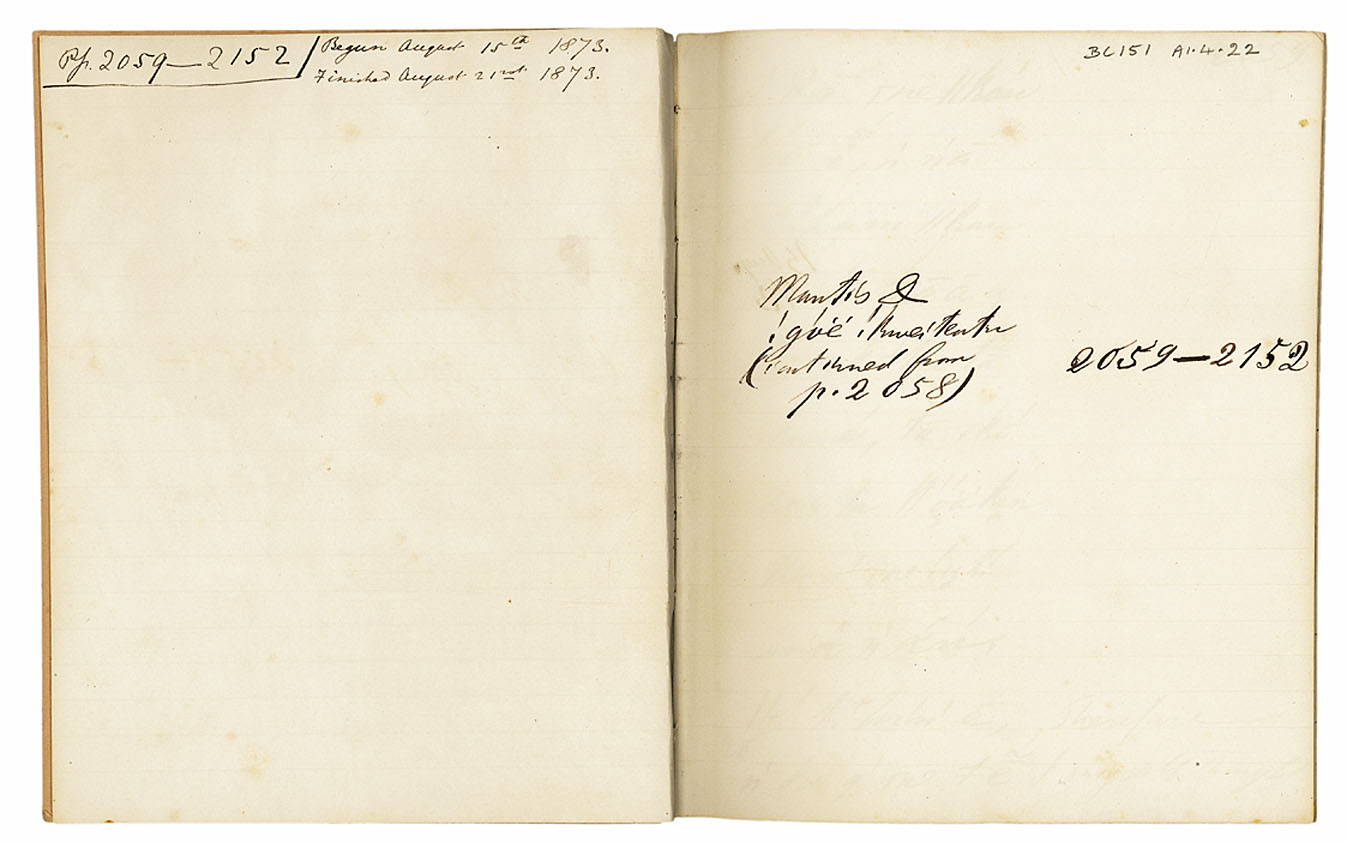 Pp. 2059—2152
Begun August 15th 1873.
Finished August 21st 1873.
BC151 A1.4.22
Mantis &
!góé !kweitentu
(Continued from
p. 2058)
2059—2152